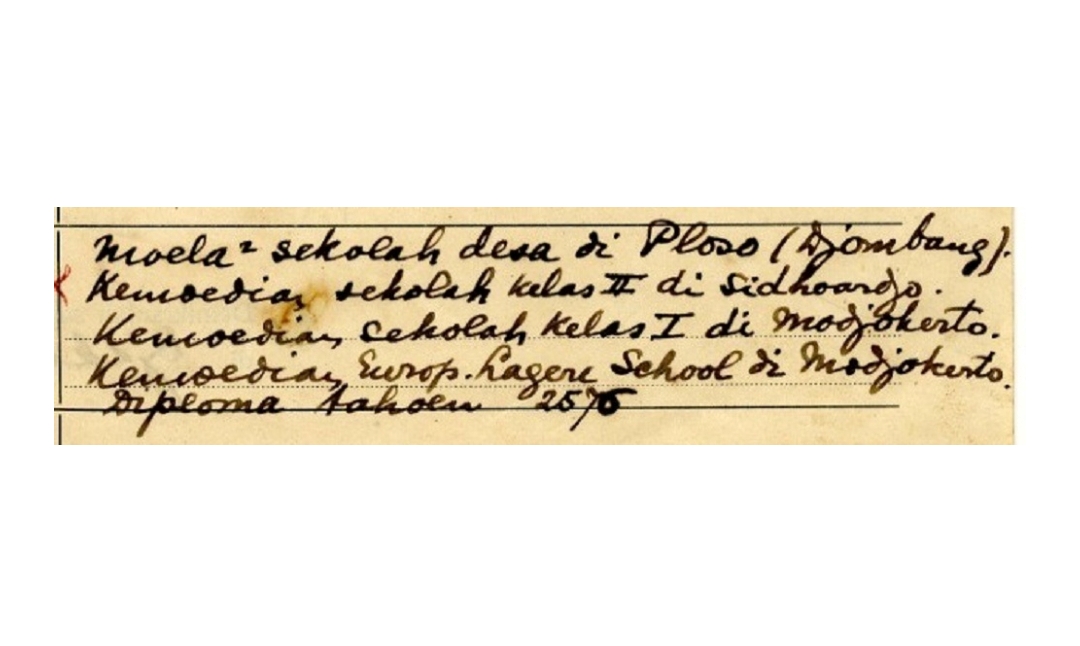 Moela² sekolah desa di Ploso (Djombang).
Kemoedian sekolah kelas II di Sidhoardjo.
Kemoedian sekolah kelas I di Modjokerto.
Kemoedian Europ. Lagere School di Modjokerto.
Diploma tahoen 2576